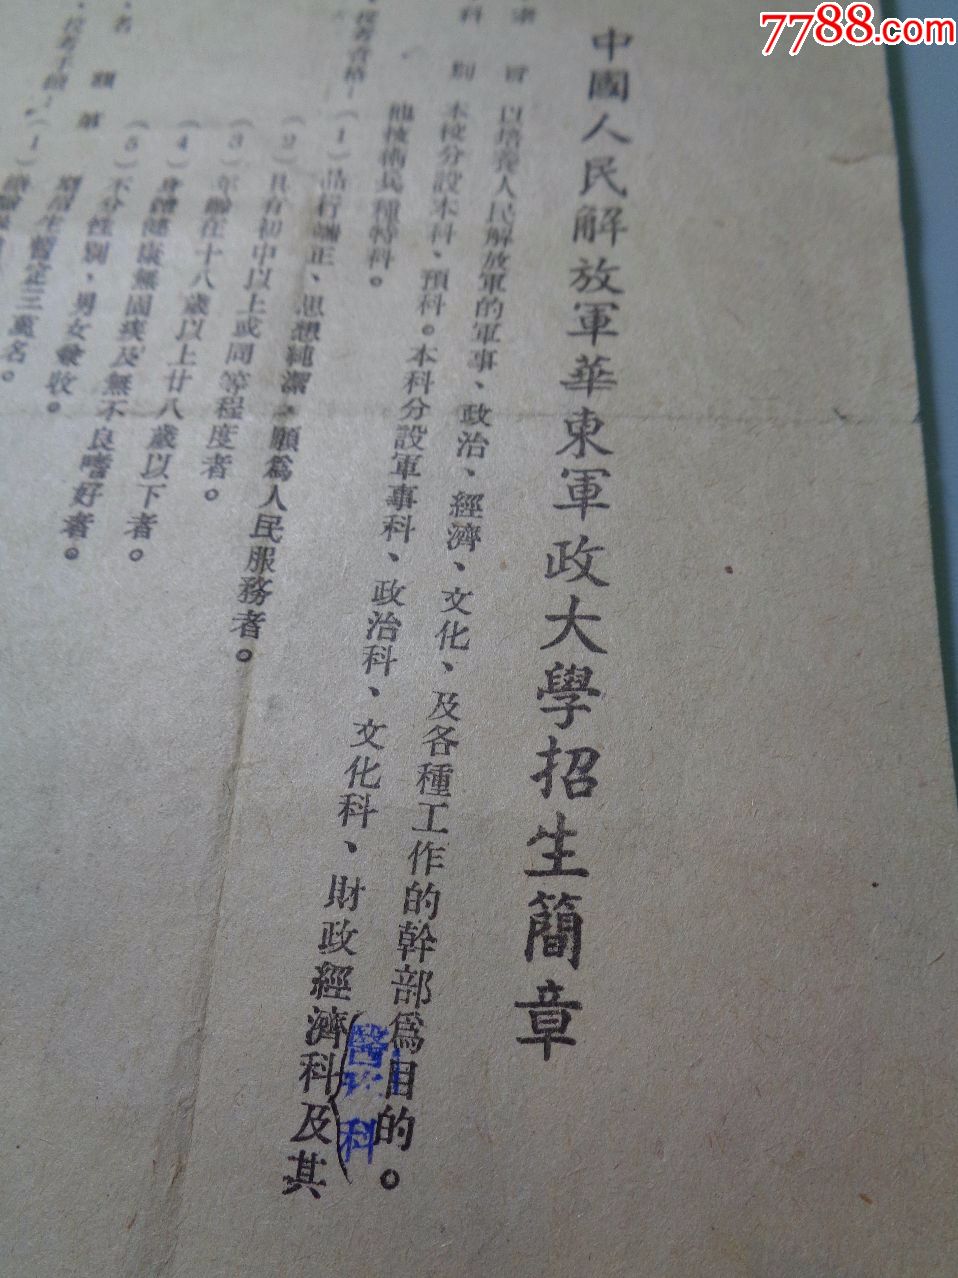 7788.com
中國人民解放軍華東軍政大學招生簡章
宗旨 以培養人民解放軍的軍事、政治、經濟、文化、及各種工作的幹部爲目的。
科別 本校分設本科、預科。本科分設軍事科、政治科、文化科、財政經濟科及其
醫 科
他技術兵種特科。
投考資格 (1)品行端正、思想純潔、願爲人民服務者。
(2)具有初中以上或同等程度者。
(3)年齡在十八歲以上廿八歲以下者。
(4)身體健康無固疾及無不良嗜好者。
(5)不分性別、男女兼收。
名額 第 期招生暫定三萬名。
投考手續 (1)